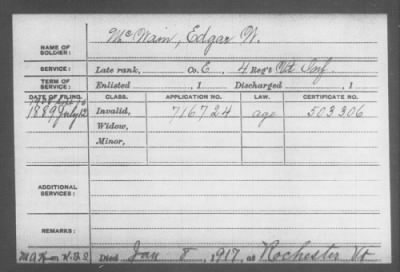 NAME OF SOLDIER: McWain, Edgar W.
SERVICE: Late rank, Co. E, 4 Reg't Vt Inf.
TERM OF SERVICE: Enlisted , 1 Discharged , 1
DATE OF FILING. CLASS. APPLICATION NO. LAW. CERTIFICATE NO.
1889 July Invalid, 716724 age 503306
Widow,
Minor,
ADDITIONAL SERVICES:
REMARKS:
Died Jan 8, 1917, at Rochester Vt